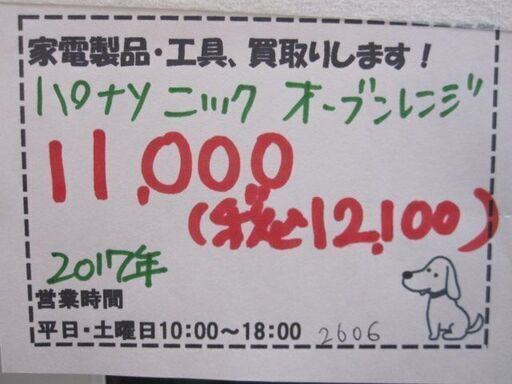 家電製品・工具、買取りします!
パナソニック オーブンレンジ
11,000
(税込12,100)
2017年
営業時間
平日・土曜日10:00~18:00 2606